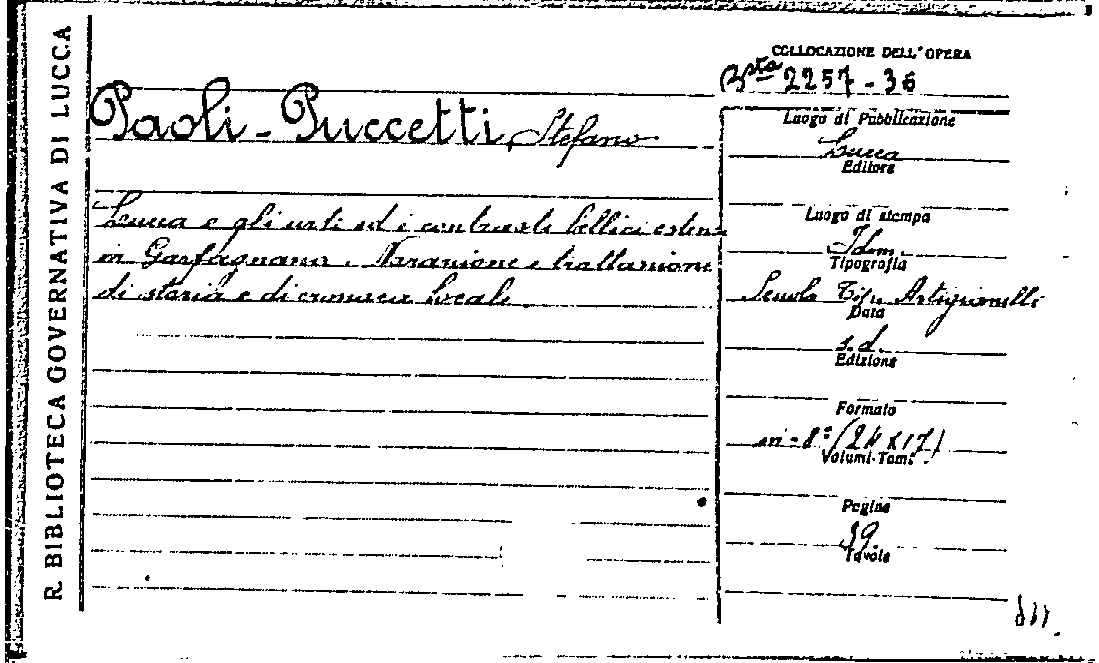 R. BIBLIOTECA GOVERNATIVA DI LUCCA
COLLOCAZIONE DELL'OPERA
Bsta 2257-36
Paoli-Puccetti, Stefano
Lucca e gli urti ed i contrasti bellici estensi
in Garfagnana. Narazione e trattazione
di storia e di cronaca locale
Luogo di Pubblicazione
Lucca
Editore
Luogo di stampa
Idem.
Tipografia
Scuola Tip. Artigianelli
Data
s.d.
Edizione
Formato
in-8° (24x17)
Volumi-Tomi
Pagine
Tavole